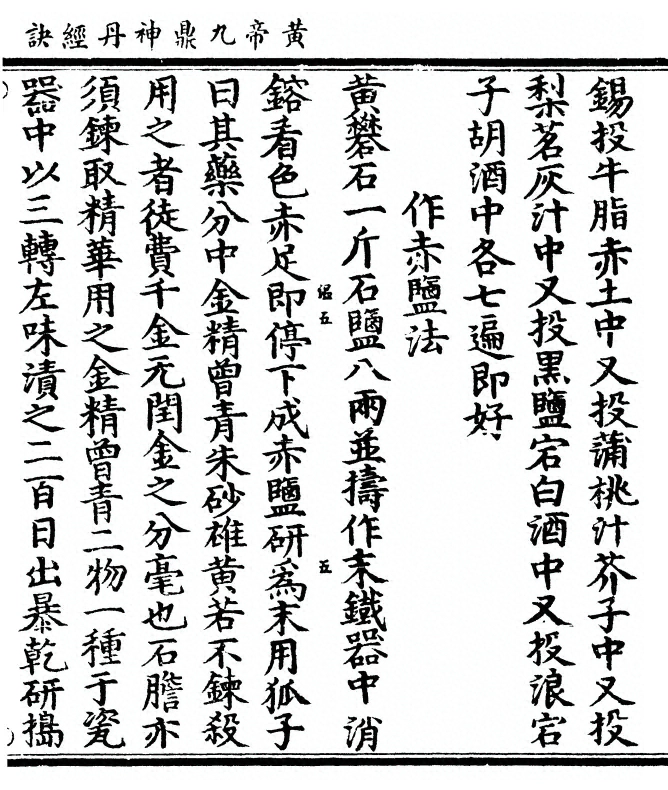 黃帝九鼎神丹經訣
錫投牛脂赤土中又投蒲桃汁芥子中又投
梨茗灰汁中又投黑鹽宕白酒中又投浪宕
子胡酒中各七遍即好
作赤鹽法
黃礬石一斤石鹽八兩並擣作末鐵器中消
鎔看色赤足即停下成赤鹽研爲末用狐子
曰其藥分中金精曾青朱砂雄黃若不鍊殺
用之者徒費千金无閏金之分毫也石膽亦
須鍊取精華用之金精曾青二物一種于瓷
器中以三轉左味漬之二百日出暴乾研搗
五